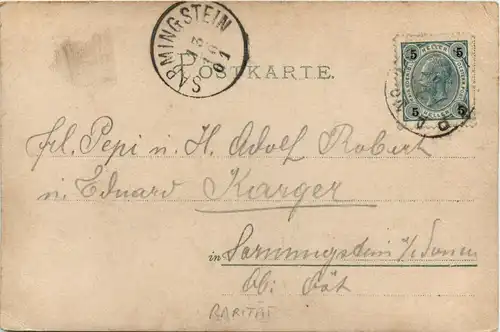 SARMINGSTEIN
01
POSTKARTE.
5 HELLER 5
5 HELLER 5
Frl. Pepi u. H. Adolf Robert
u. Eduard Karger
in Sarmingstein a/Donau
Ob. Öst
RARITÄT